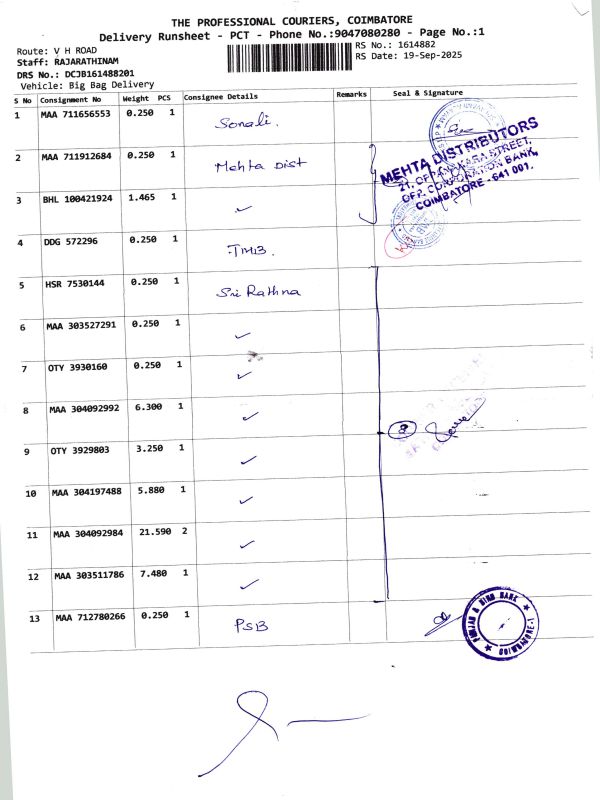 THE PROFESSIONAL COURIERS, COIMBATORE
Delivery Runsheet - PCT - Phone No.:9047080280 - Page No.:1
Route: V H ROAD
RS No.: 1614882
Staff: RAJARATHINAM
RS Date: 19-Sep-2025
DRS No.: DCJB161488201
Vehicle: Big Bag Delivery
S No Consignment No Weight PCS Consignee Details Remarks Seal & Signature
1 MAA 711656553 0.250 1 Sonali.
2 MAA 711912684 0.250 1 Mehta Dist
MEHTA DISTRIBUTORS
COIMBATORE - 641 001.
3 BHL 100421924 1.465 1 ✓
4 DDG 572296 0.250 1 TMB.
5 HSR 7530144 0.250 1 Sri Rathna
6 MAA 303527291 0.250 1 ✓
7 OTY 3930160 0.250 1 ✓
8 MAA 304092992 6.300 1 ✓
9 OTY 3929803 3.250 1 ✓
10 MAA 304197488 5.880 1 ✓
11 MAA 304092984 21.590 2 ✓
12 MAA 303511786 7.480 1 ✓
13 MAA 712780266 0.250 1 PSB
PUNJAB & SIND BANK
COIMBATORE-1